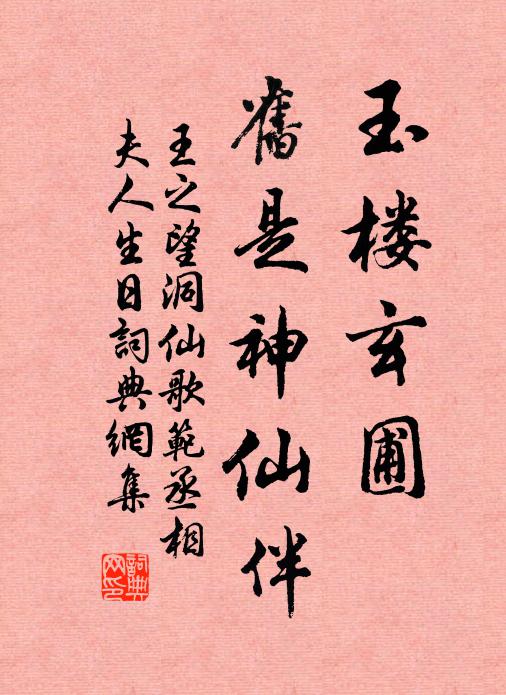 玉楼玄圃
舊是神仙伴
王之望洞仙歌範丞相
夫人生日詞典網集
詞典网印